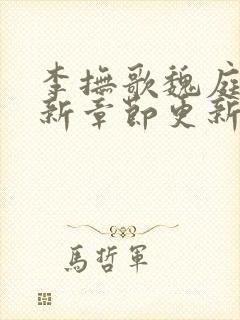 李撫歌魏庭
新章節更新
馬哲軍